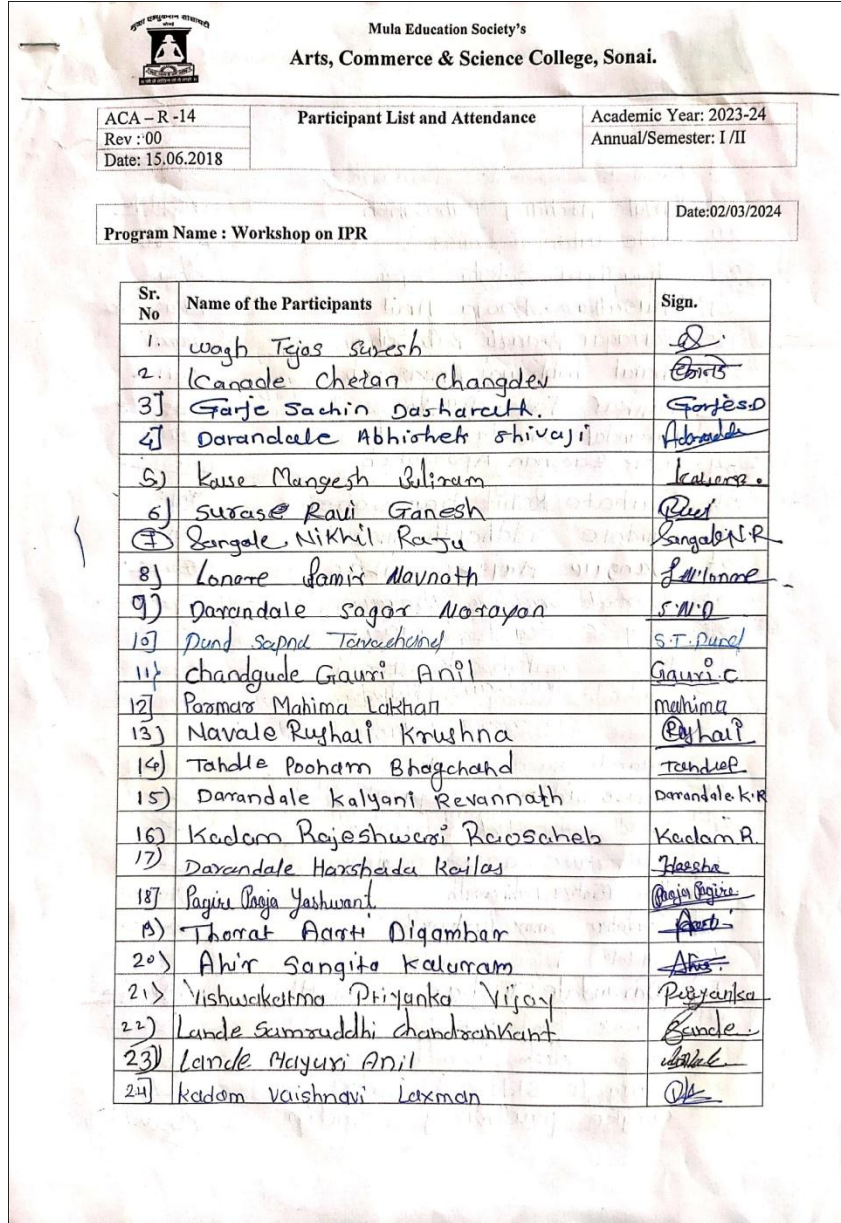 Mula Education Society's
Arts, Commerce & Science College, Sonai.
ACA – R -14 Participant List and Attendance Academic Year: 2023-24
Rev : 00 Annual/Semester: I /II
Date: 15.06.2018
Date:02/03/2024
Program Name : Workshop on IPR
Sr. No Name of the Participants Sign.
1. Wagh Tejas Suresh
2. Kanade Chetan Changdev
3] Garje Sachin Dasharath. Garje S.D
4] Darandale Abhishek Shivaji
5) Mangesh
6) Surase Ravi Ganesh Ravi
7 Sangale Nikhil Raju Sangale N.R
8) Lonare Samir Navnath
9) Darandale Sagar Narayan S.N.D
10] Pund Sapna Tarachand S.T. Pund
11) Chandgude Gauri Anil Gauri.C
12] Parmar Mahima Lakhan mahima
13) Navale Rushali Krushna Rushali
14) Poonam Bhagchand
15) Darandale Kalyani Revannath Darandale K.R
16) Kadam Rajeshwari Raosaheb Kadam R.
17) Darandale Harshada Kailas Harsha
18] Pagire Pooja Yashwant Pooja Pagire
19) Thorat Aarti Digambar
20) Ahir Sangita Kaluram
21) Vishwakarma Priyanka Vijay Priyanka
22) Lande Samruddhi Chandrahkant Lande.
23) Lande Mayuri Anil
24] Kadam Vaishnavi Laxman